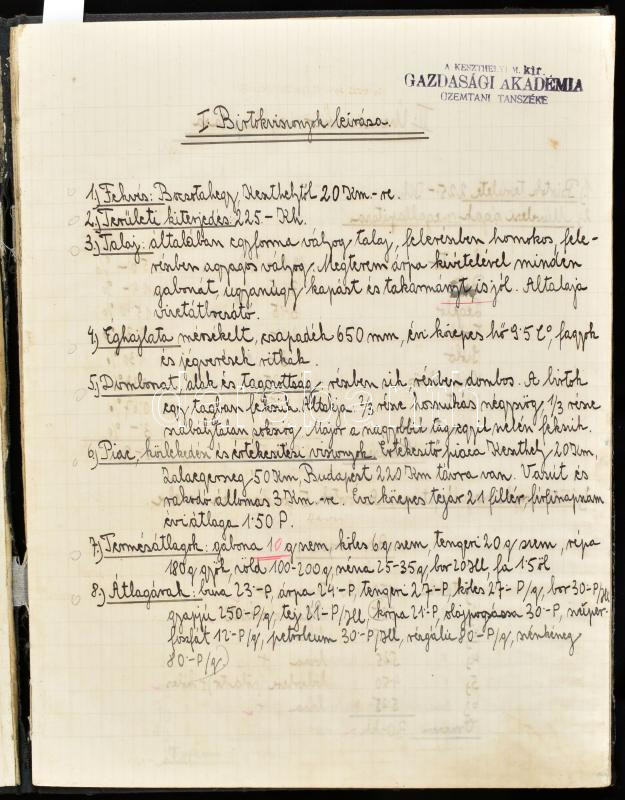 A KESZTHELYI M. kir.
GAZDASÁGI AKADÉMIA
ÜZEMTANI TANSZÉKE
I. Birtokviszonyok leírása.
1.) Fekvés: Bocsotahegy, Keszthelytől 20 Km.-re.
2.) Területi kiterjedés: 225.- Kh.
3.) Talaj: általában egyforma vályog talaj, felerészben homokos, fele-
részben agyagos vályog. Megterem árpa kivételével minden
gabonát, ugyanúgy kapást és takarmányt is jól. Altalaja
vizetátbocsátó.
4.) Éghajlata mérsékelt, csapadék 650 mm, évi közepes hő 9.5 C°, fagyok
és jégverések ritkák.
5.) Domborzat, alak és tagozottság, részben sík, részben dombos. A birtok
egy tagban fekszik. Alakja 2/3 része hosszúkás négyszög, 1/3 része
szabálytalan sokszög. Major a nagyobbik tag egyik szélén fekszik.
6.) Piac, közlekedési és értékesítési viszonyok. Értékesítő piaca Keszthely 20 Km,
Zalaegerszeg 50 Km, Budapest 220 Km távra van. Vasút és
rakodó állomás 3 Km.-re. Évi közepes tejár 21 fillér, férfinapszám
évi átlaga 1.50 P.
7.) Termésátlagok: gabona 10 q szem, köles 6 q szem, tengeri 20 q szem, répa
180 q gyök, zöld 100-200 q, széna 25-35 q, bor 20 Hl, fa 1.5 öl
8.) Átlagárak: búza 23.-P, árpa 24.-P, tengeri 27.-P, köles 27.-P/q, bor 30.-P/Hl
gyapjú 250.-P/q, tej 21.-P/Hl (korpa 21.-P, olajpogácsa 30.-P, szuper-
foszfát 12.-P/q, petróleum 30.-P/Hl, rézgálic 80.-P/q, szénkéneg
80.-P/q)